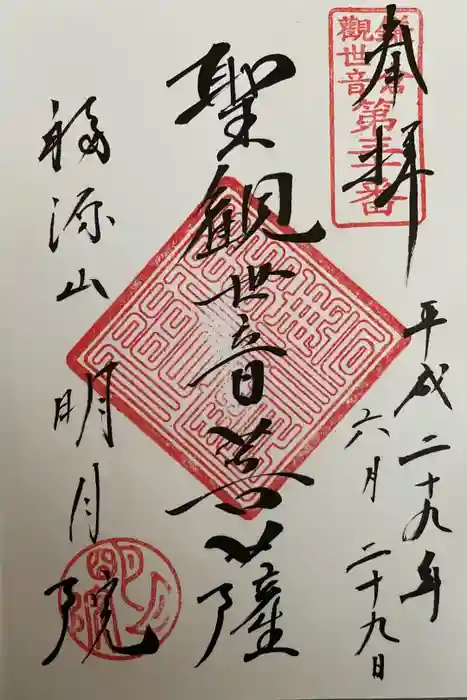 奉拝
鎌倉
觀世音
第三十番
平成二十九年
六月二十九日
聖観世音菩薩
福源山明月院